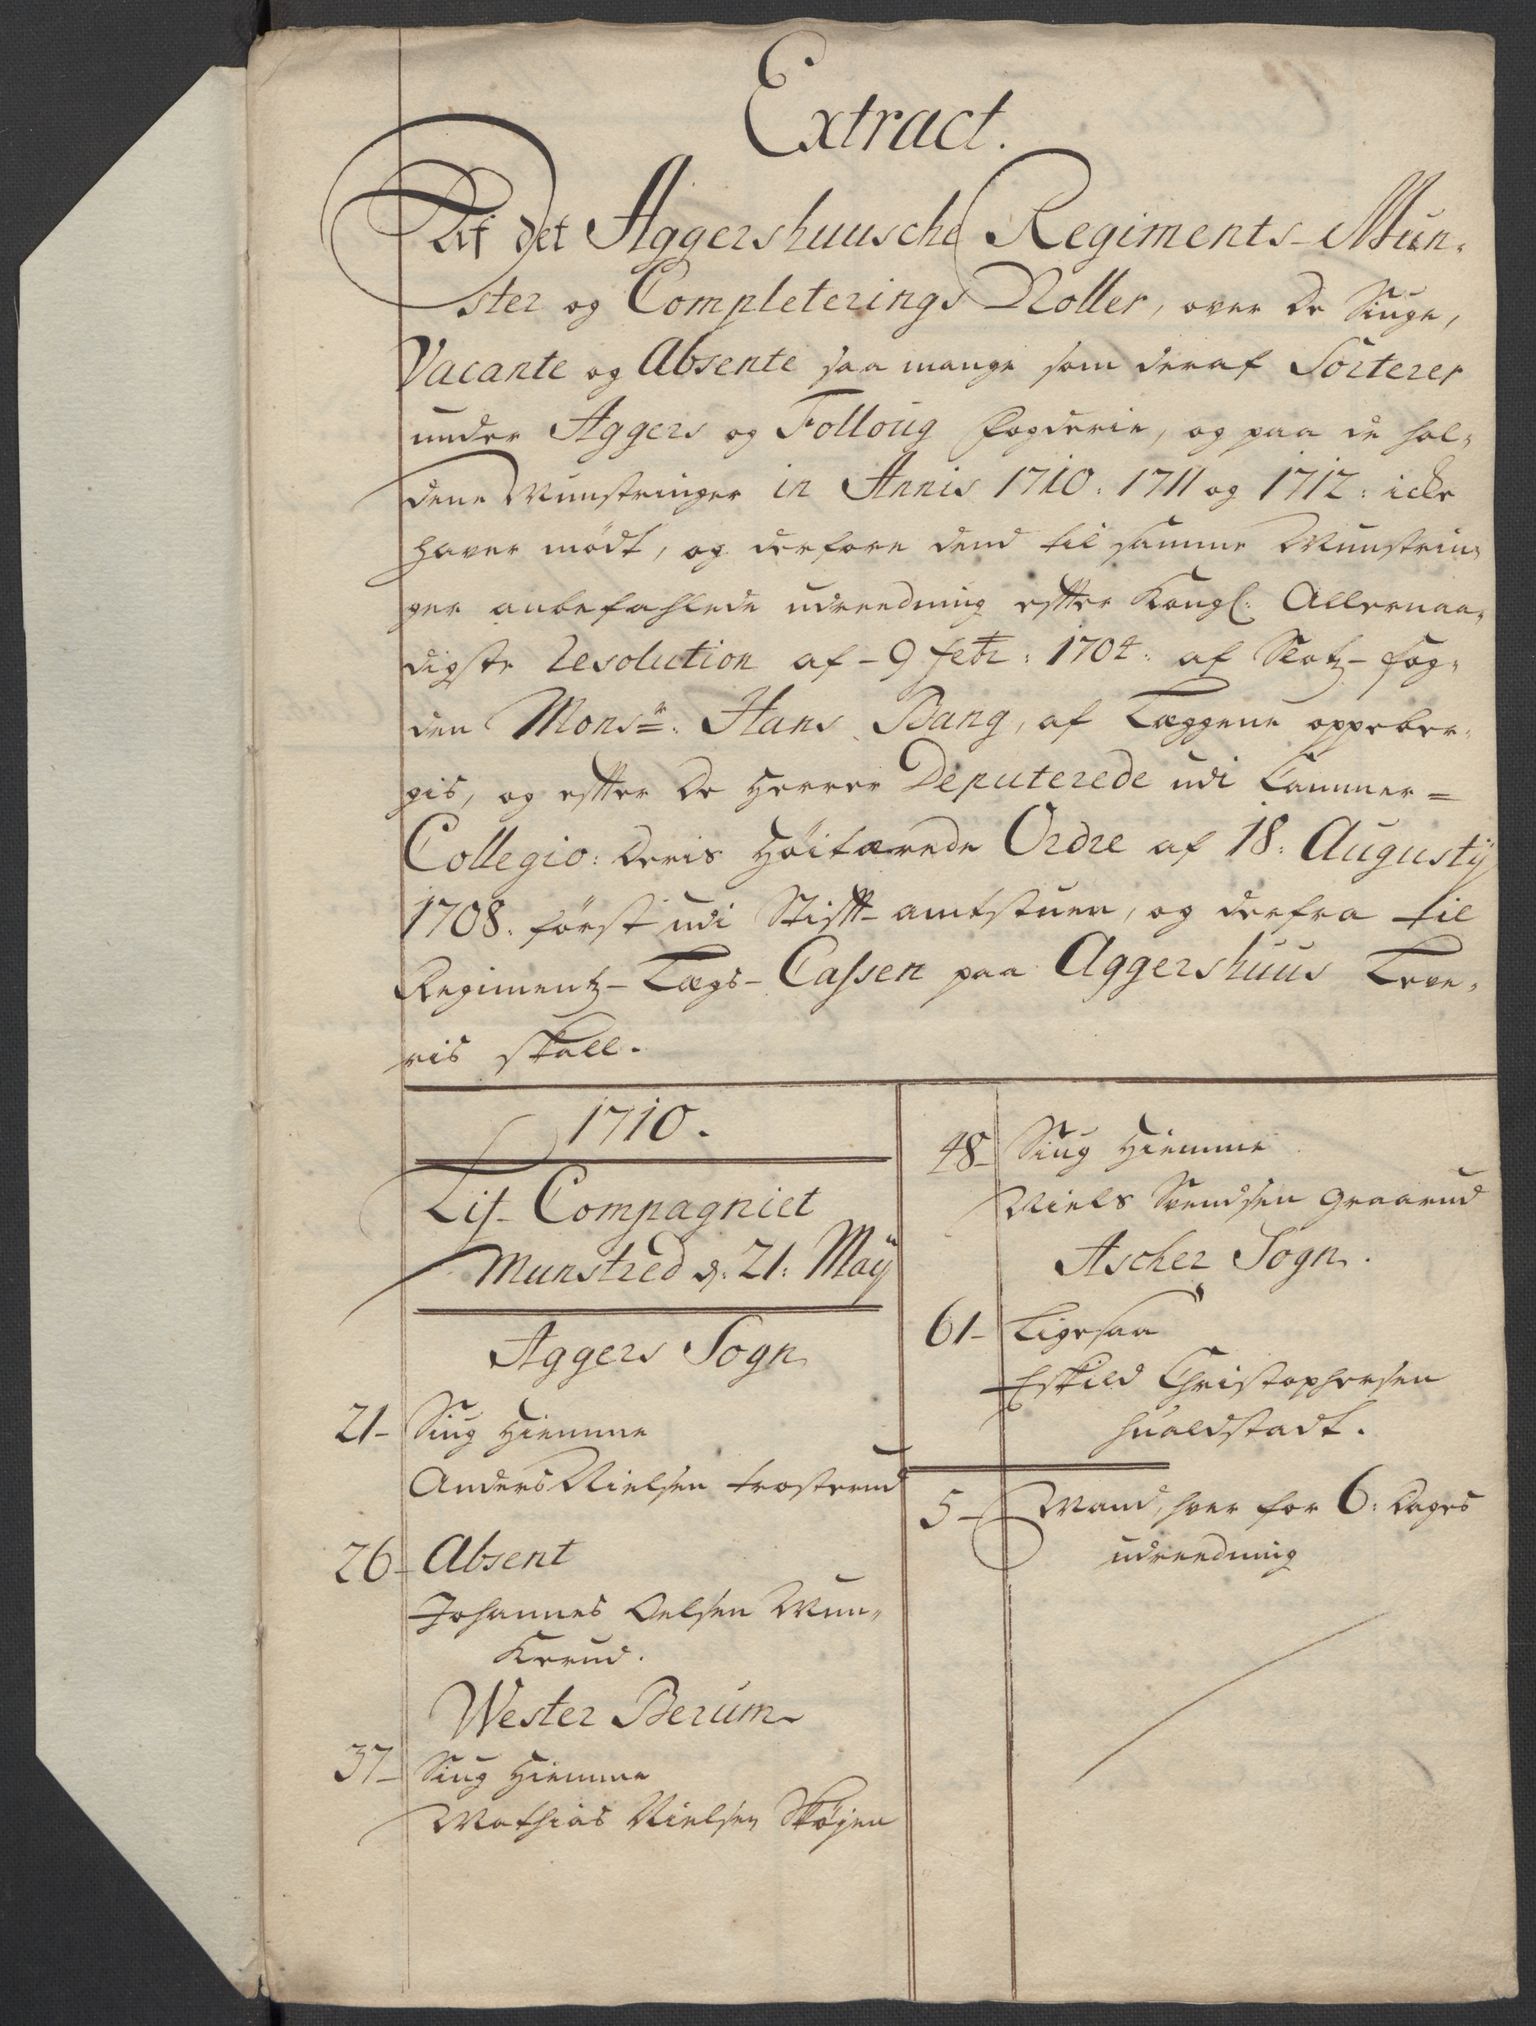 Extract.
Af det Aggershuusche Regiments-Mun-
ster og Completerings Roller, over de Siuge,
Vacante og Absente saa mange som deraf Sorterer
under Aggers og Folloug fogderie, og paa de hol-
dene Munstringer in Annis 1710: 1711 og 1712: icke
haver mødt, og derfore dend til samme Munstrin-
ger anbefahlede udreedning efter Kongl: Allernaa-
digste Resolution af-9 febr: 1704: af Slotz-fog-
den Monsr: Hans Bang, af Læggene oppeber-
gis, og efter De Herrer Deputerede udi Cammer=
Collegio: deris høitærede Ordre af 18: Augustij
1708. først udi Stift-amtstuen, og derfra til
Regimentz-Lægs-Cassen paa Aggershuus Leve-
ris skall.
1710.
Lif-Compagniet
Munstred d: 21: Maij
Aggers Sogn
21- Siug Hiemme
Anders Nielsen trosterud
26- Absent
Johannes Olsen Mun-
kerud.
Wester Berum
37- Siug Hiemme
Mathias Nielsen Skøyen
48- Siug Hiemme
Niels Svendsen Graarud
Ascher Sogn.
61- Ligesaa
Eskild Christophersen
hualdstadt.
5- Mand, hver for 6: Dages
udreedning